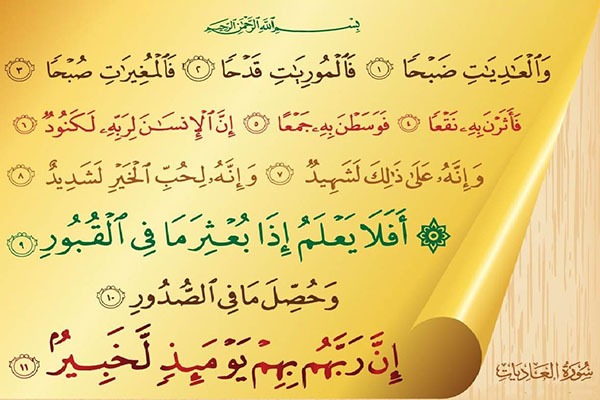 بِسْمِ ٱللَّهِ ٱلرَّحْمَٰنِ ٱلرَّحِيمِ
وَٱلْعَٰدِيَٰتِ ضَبْحًا ١ فَٱلْمُورِيَٰتِ قَدْحًا ٢ فَٱلْمُغِيرَٰتِ صُبْحًا ٣
فَأَثَرْنَ بِهِۦ نَقْعًا ٤ فَوَسَطْنَ بِهِۦ جَمْعًا ٥ إِنَّ ٱلْإِنسَٰنَ لِرَبِّهِۦ لَكَنُودٌ ٦
وَإِنَّهُۥ عَلَىٰ ذَٰلِكَ لَشَهِيدٌ ٧ وَإِنَّهُۥ لِحُبِّ ٱلْخَيْرِ لَشَدِيدٌ ٨
۞ أَفَلَا يَعْلَمُ إِذَا بُعْثِرَ مَا فِى ٱلْقُبُورِ ٩
وَحُصِّلَ مَا فِى ٱلصُّدُورِ ١٠
إِنَّ رَبَّهُم بِهِمْ يَوْمَئِذٍ لَّخَبِيرٌۢ ١١
سُورَةُ العَادِيَات